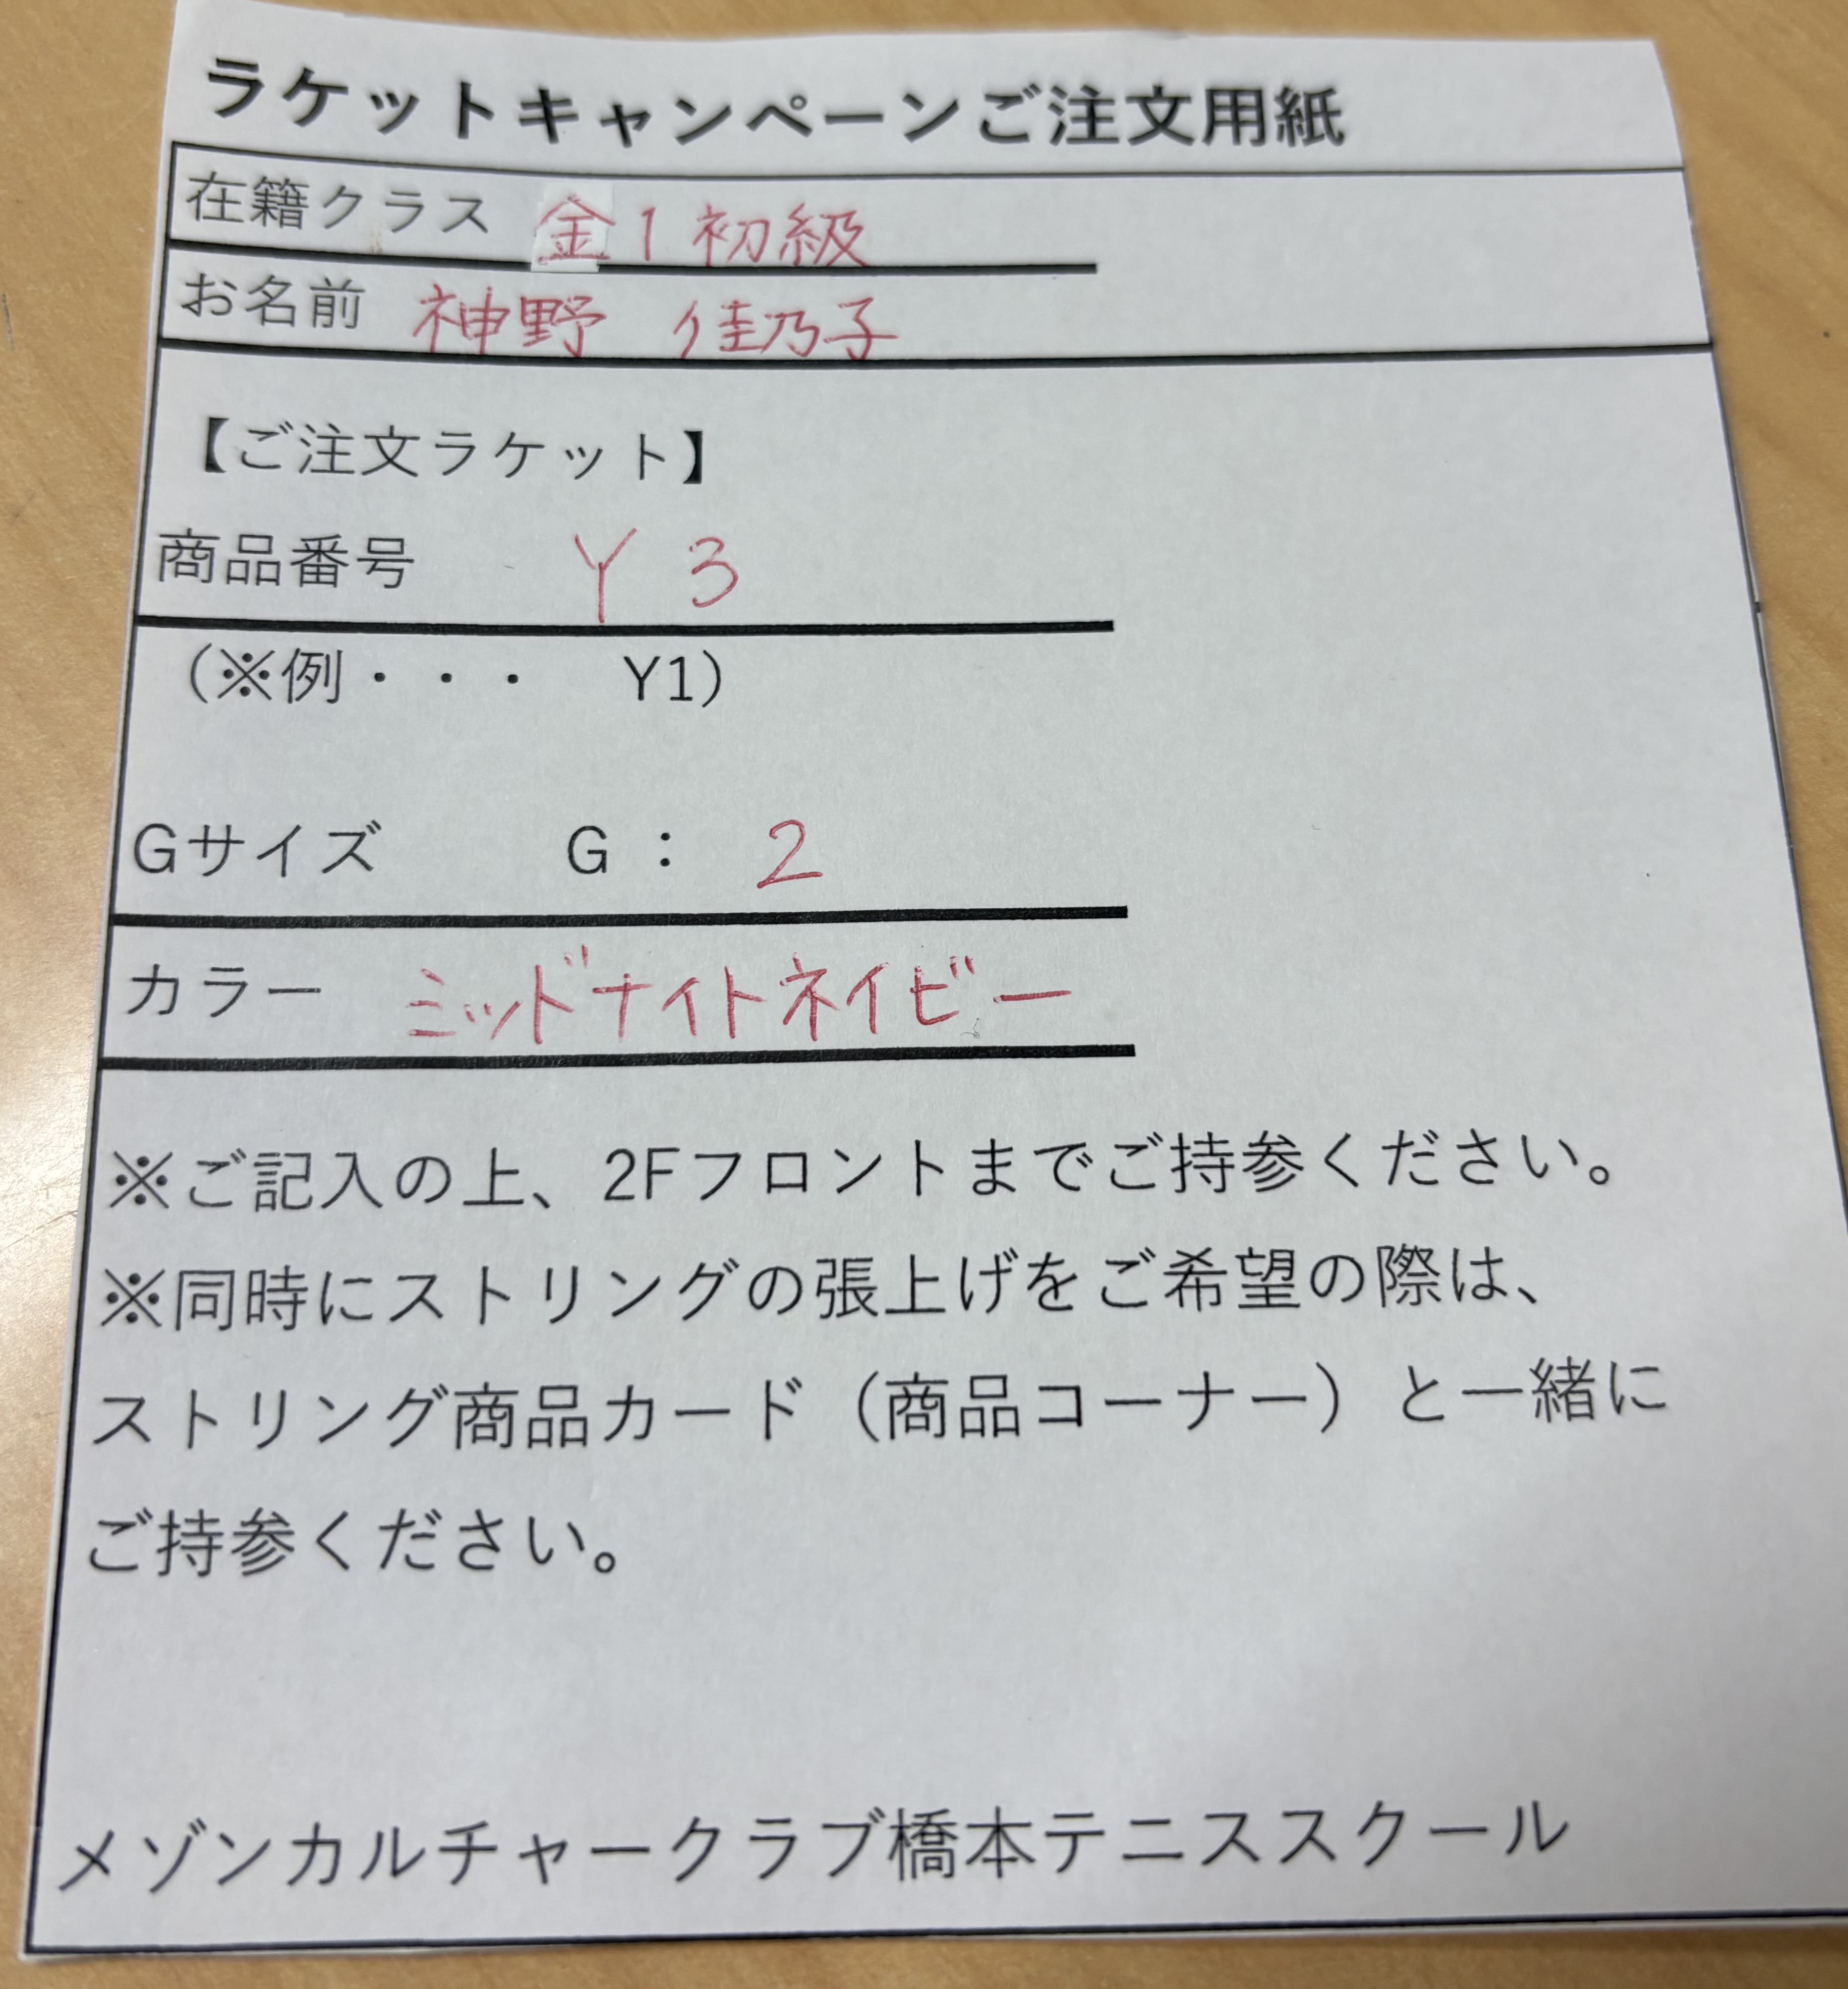 ラケットキャンペーンご注文用紙
在籍クラス 金1初級
お名前 神野 佳乃子
【ご注文ラケット】
商品番号 Y3
（※例・・・ Y1）
Gサイズ G： 2
カラー ミッドナイトネイビー
※ご記入の上、2Fフロントまでご持参ください。
※同時にストリングの張上げをご希望の際は、
ストリング商品カード（商品コーナー）と一緒に
ご持参ください。
メゾンカルチャークラブ橋本テニススクール